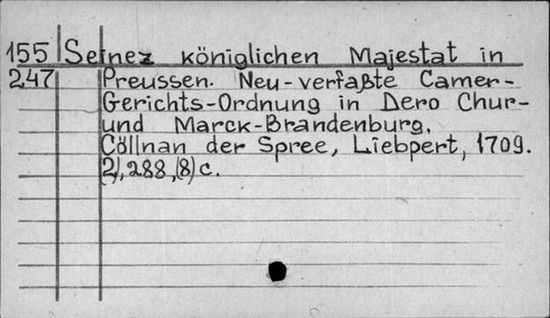 155 Seinez königlichen Majestat in
247 Preussen. Neu-verfaßte Camer-
Gerichts-Ordnung in Dero Chur-
und Marck-Brandenburg.
Cöllnan der Spree, Liebpert, 1709.
(2), 288, (8) c.